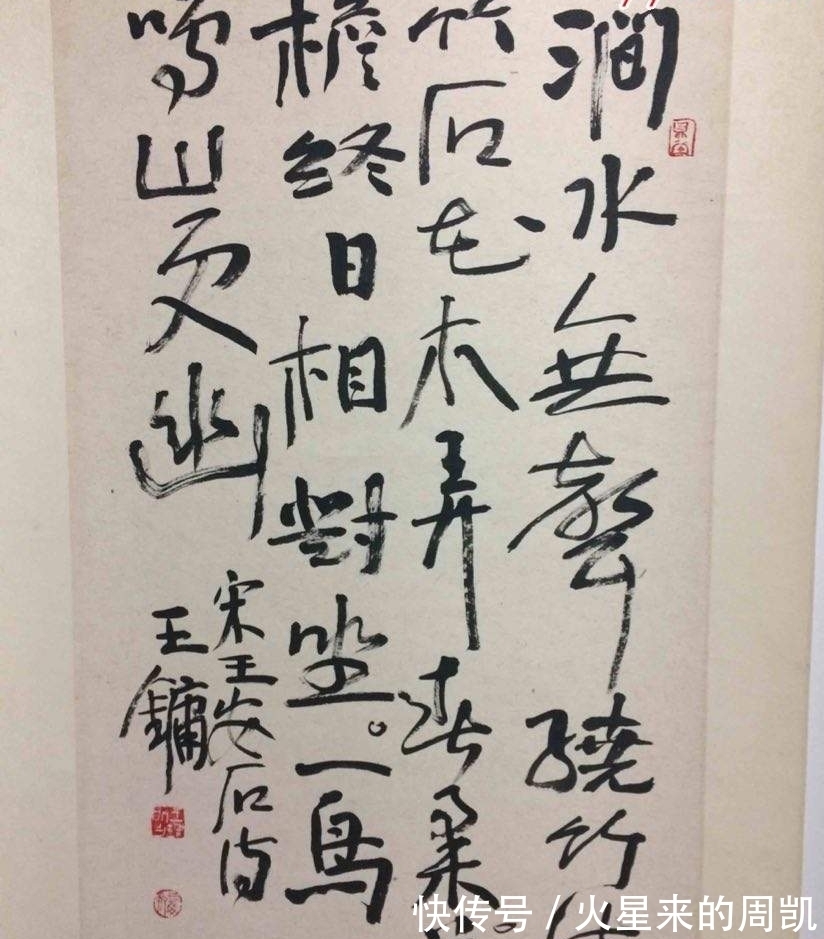 澗水無聲繞竹
竹石花木弄春柔
檐終日相對坐。一鳥
鳴山更幽
宋王安石詩
王鏞
快传号 / 火星来的周凯